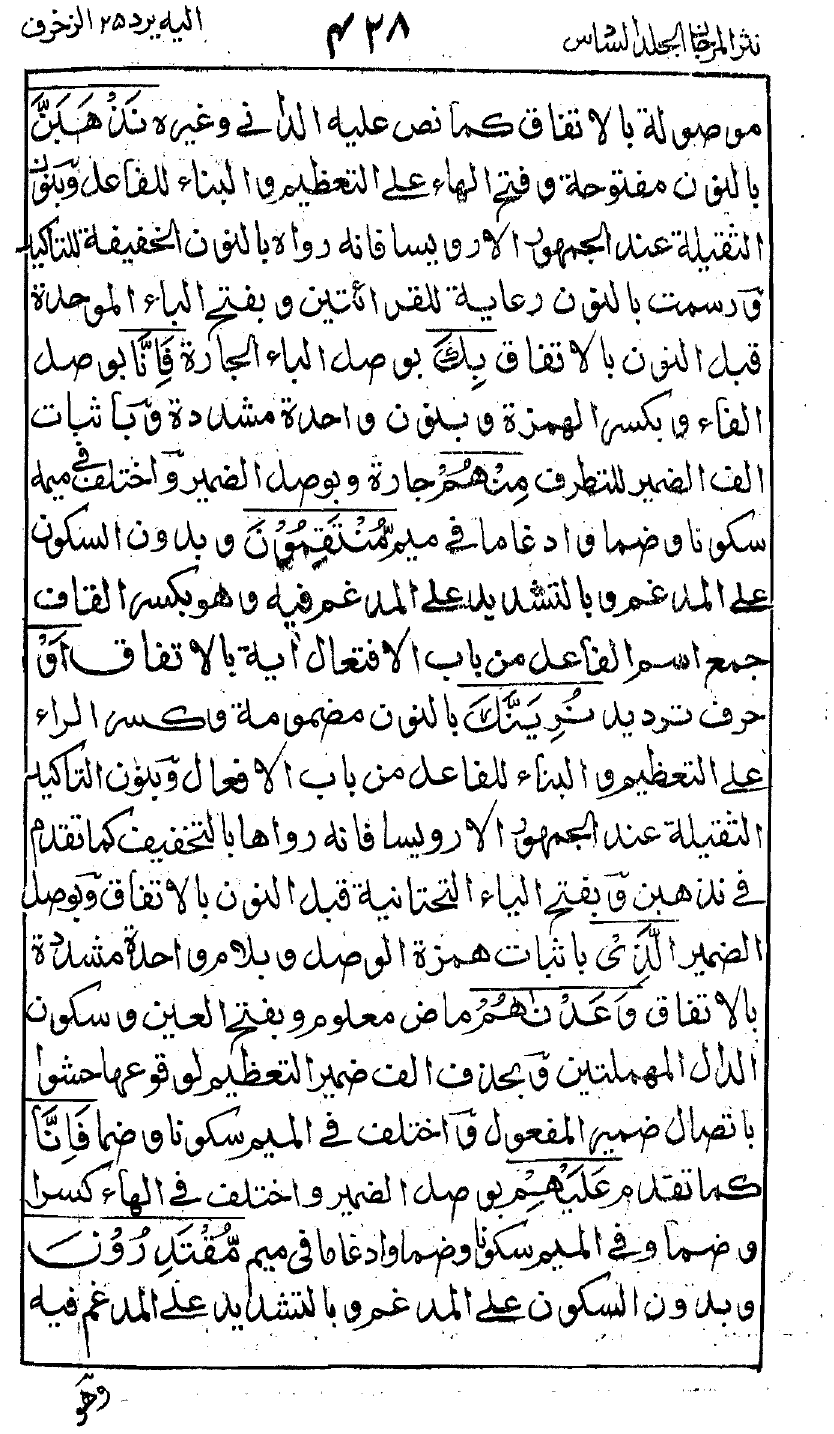 نثر المرجان المجلد السادس
٤٣٨
اليه يرد ٢٥ الزخرف
موصولة بالاتفاق كما نص عليه الداني وغيره نَذْهَبَنَّ
بالنون مفتوحة وفتح الهاء على التعظيم والبناء للفاعل وبنون
الثقيلة عند الجمهور الا رويسا فانه رواه بالنون الخفيفة للتاكيد
ورسمت بالنون رعاية للقرائتين وبفتح الباء الموحدة
قبل النون بالاتفاق بِكَ بوصل الباء الجارة فَاِنَّا بوصل
الفاء وبكسر الهمزة وبنون واحدة مشددة وباثبات
الف الضمير للتطرف مِنْهُمْ جارة وبوصل الضمير واختلف في ميمه
سكونا وضما وادغاما في ميم مُّنْتَقِمُوْنَ وبدون السكون
على المدغم وبالتشديد على المدغم فيه وهو بكسر القاف
جمع اسم الفاعل من باب الافتعال اية بالاتفاق اَوْ
حرف ترديد نُرِيَنَّكَ بالنون مضمومة وكسر الراء
على التعظيم والبناء للفاعل من باب الافعال وبنون التاكيد
الثقيلة عند الجمهور الا رويسا فانه رواها بالتخفيف كما تقدم
في نذهبن وبفتح الياء التحتانية قبل النون بالاتفاق وبوصل
الضمير الَّذِيْ باثبات همزة الوصل وبلام واحدة مشددة
بالاتفاق وَعَدْنٰهُمْ ماض معلوم وبفتح العين وسكون
الدال المهملتين وبحذف الف ضمير التعظيم لوقوعها حشوا
باتصال ضمير المفعول واختلف في الميم سكونا وضما فَاِنَّا
كما تقدم عَلَيْهِمْ بوصل الضمير واختلف في الهاء كسرا
وضما وفي الميم سكونا وضما وادغاما في ميم مُّقْتَدِرُوْنَ
وبدون السكون على المدغم وبالتشديد على المدغم فيه
وهو